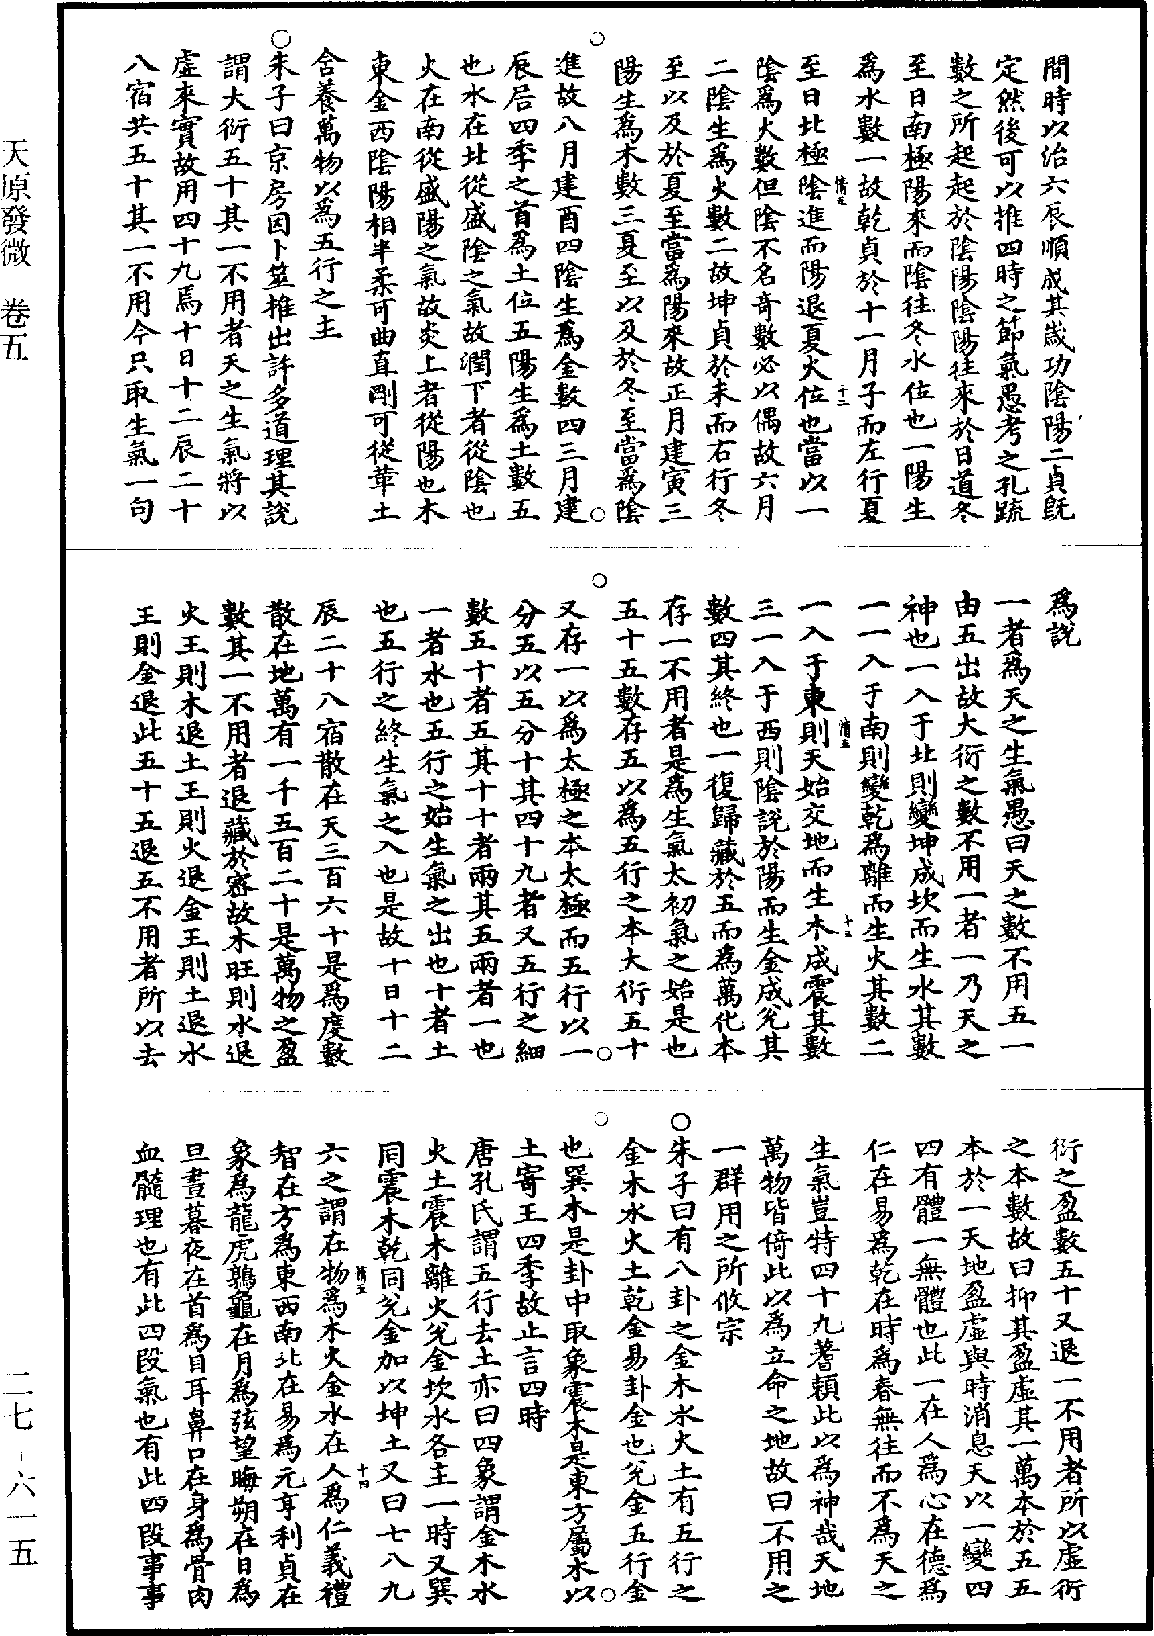 間時以治六辰順成其歲功陰陽二貞既
定然後可以推四時之節氣愚考之孔疏
數之所起起於陰陽陰陽往來於日道冬
至日南極陽來而陰往冬水位也一陽生
為水數一故乾貞於十一月子而左行夏
至日北極陰進而陽退夏火位也當以一
陰為火數但陰不名奇數必以偶故六月
二陰生為火數二故坤貞於未而右行冬
至以及於夏至當為陽來故正月建寅三
陽生為木數三夏至以及於冬至當為陰
進故八月建酉四陰生為金數四三月建
辰居四季之首為土位五陽生為土數五
也水在北從盛陰之氣故潤下者從陰也
火在南從盛陽之氣故炎上者從陽也木
東金西陰陽相半柔可曲直剛可從革土
含養萬物以為五行之主
○朱子曰京房因卜筮推出許多道理其說
謂大衍五十其一不用者天之生氣將以
虛來實故用四十九焉十日十二辰二十
八宿共五十其一不用今只取生氣一句
為說
一者為天之生氣愚曰天之數不用五一
由五出故大衍之數不用一者一乃天之
神也一入于北則變坤成坎而生水其數
一一入于南則變乾為離而生火其數二
一入于東則天始交地而生木成震其數
三一入于西則陰說於陽而生金成兌其
數四其終也一復歸藏於五而為萬化本
存一不用者是為生氣太初氣之始是也
五十五數存五以為五行之本大衍五十
又存一以為太極之本太極而五行以一
分五以五分十其四十九者又五行之細
數五十者五其十十者兩其五兩者一也
一者水也五行之始生氣之出也十者土
也五行之終生氣之入也是故十日十二
辰二十八宿散在天三百六十是為度數
散在地萬有一千五百二十是萬物之盈
數其一不用者退藏於密故木旺則水退
火王則木退土王則火退金王則土退水
王則金退此五十五退五不用者所以去
衍之盈數五十又退一不用者所以虛衍
之本數故曰抑其盈虛其一萬本於五五
本於一天地盈虛與時消息天以一變四
四有體一無體也此一在人為心在德為
仁在易為乾在時為春無往而不為天之
生氣豈特四十九蓍賴此以為神哉天地
萬物皆倚此以為立命之地故曰不用之
一群用之所攸宗
○朱子曰有八卦之金木水火土有五行之
金木水火土乾金易卦金也兌金五行金
也巽木是卦中取象震木是東方屬木以
土寄王四季故止言四時
唐孔氏謂五行去土亦曰四象謂金木水
火土震木離火兌金坎水各主一時又巽
同震木乾同兌金加以坤土又曰七八九
六之謂在物為木火金水在人為仁義禮
智在方為東西南北在易為元亨利貞在
象為龍虎鶉龜在月為弦望晦朔在日為
旦晝暮夜在首為目耳鼻口在身為骨肉
血髓理也有此四段氣也有此四段事事
天原發微　卷五
二七－六一五